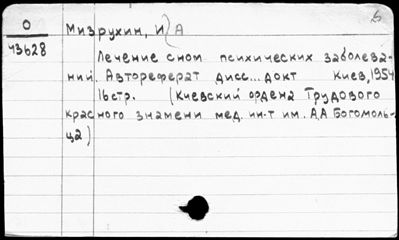 О
43628
Мизрухин, И А
Лечение сном психических заболева-
ний. Автореферат дисс... докт Киев, 1954
16 стр. (Киевский ордена Трудового
красного знамени мед. ин-т им. А.А Богомоль-
ца)